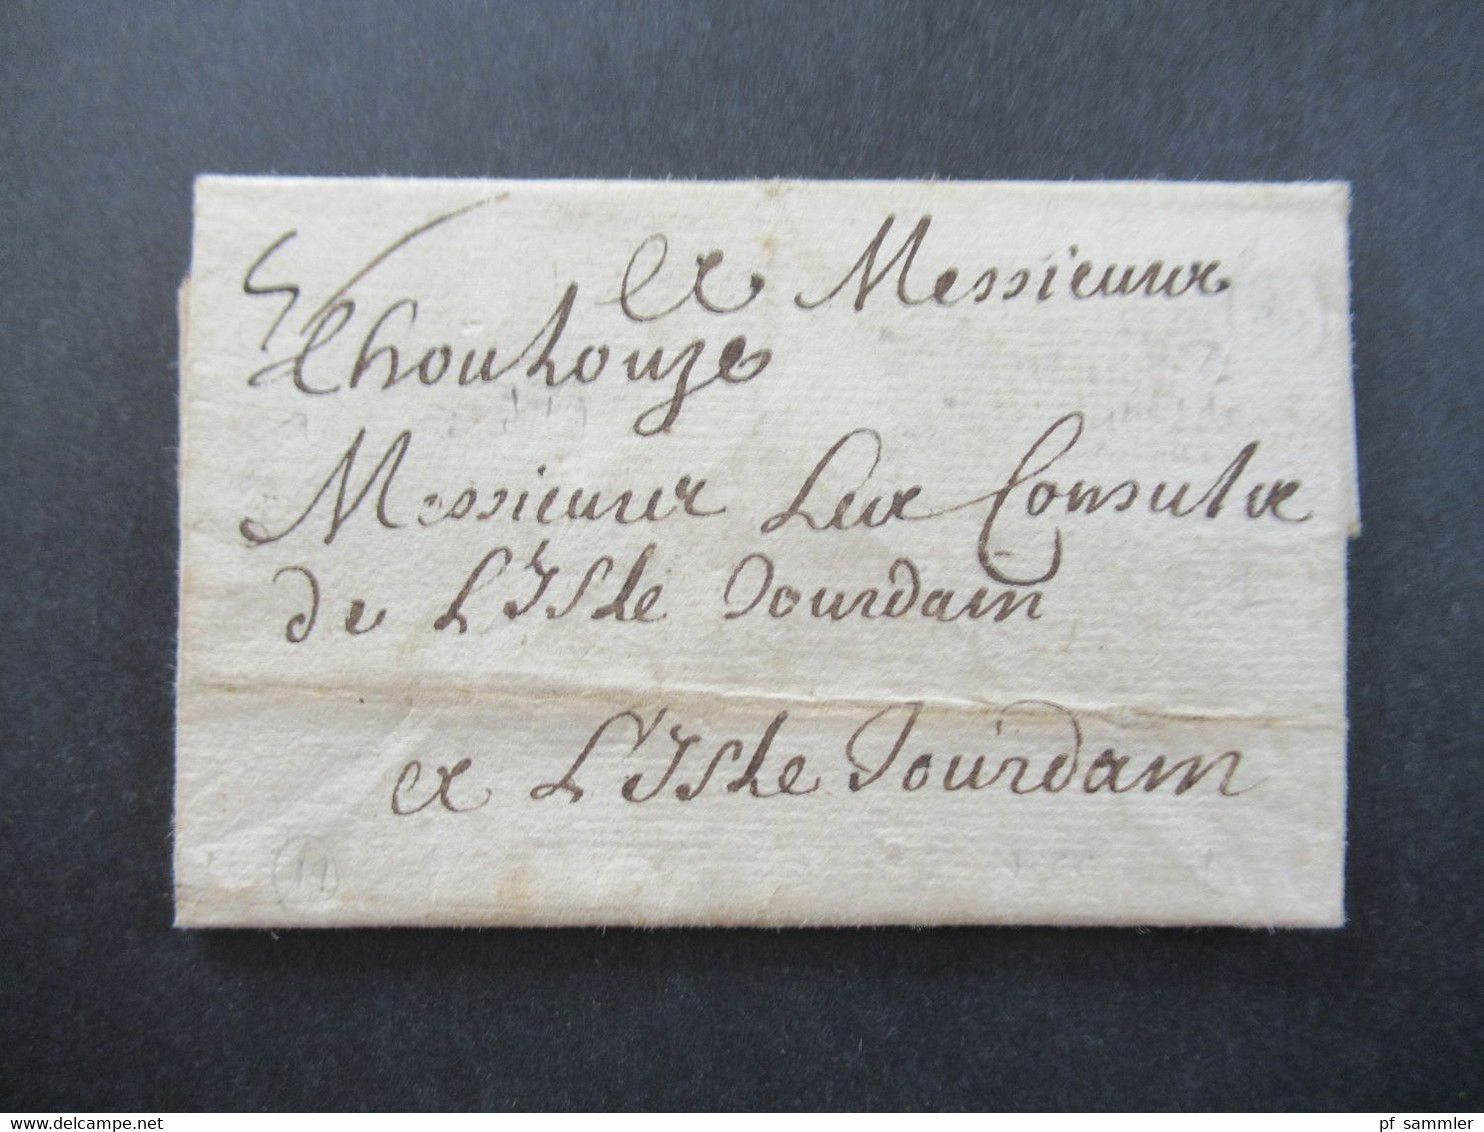 A Messieurs
thoulouze
Messieurs Les Consuls
de L'Isle Jourdain
A L'Isle Jourdain
12
pf_sammler